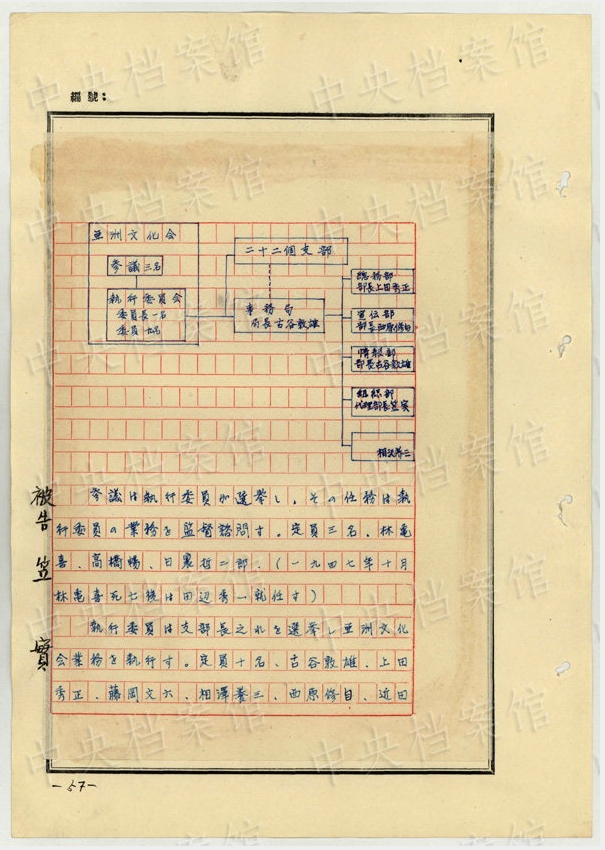 編號：
亜洲文化会
参議三名
執行委員会
委員長一名
委員九名
二十二個支部
事務局
局長古谷敦雄
總務部
部長上田秀正
宣伝部
部長西原修自
情報部
部長古谷敦雄
組織部
代理部長笠実
相沢養三
参議は執行委員が選挙し、その任務は執
行委員の業務を監督諮問す。定員三名、林亀
喜、高橋暢、日裏哲二郎、（一九四七年十月
林亀喜死亡後は田辺秀一就任す）
執行委員は支部長之れを選挙し亜洲文化
会業務を執行す。定員十名、古谷敦雄、上田
秀正、藤岡文六、相澤養三、西原修自、近田
被告 笠 實
-57-
中央档案馆